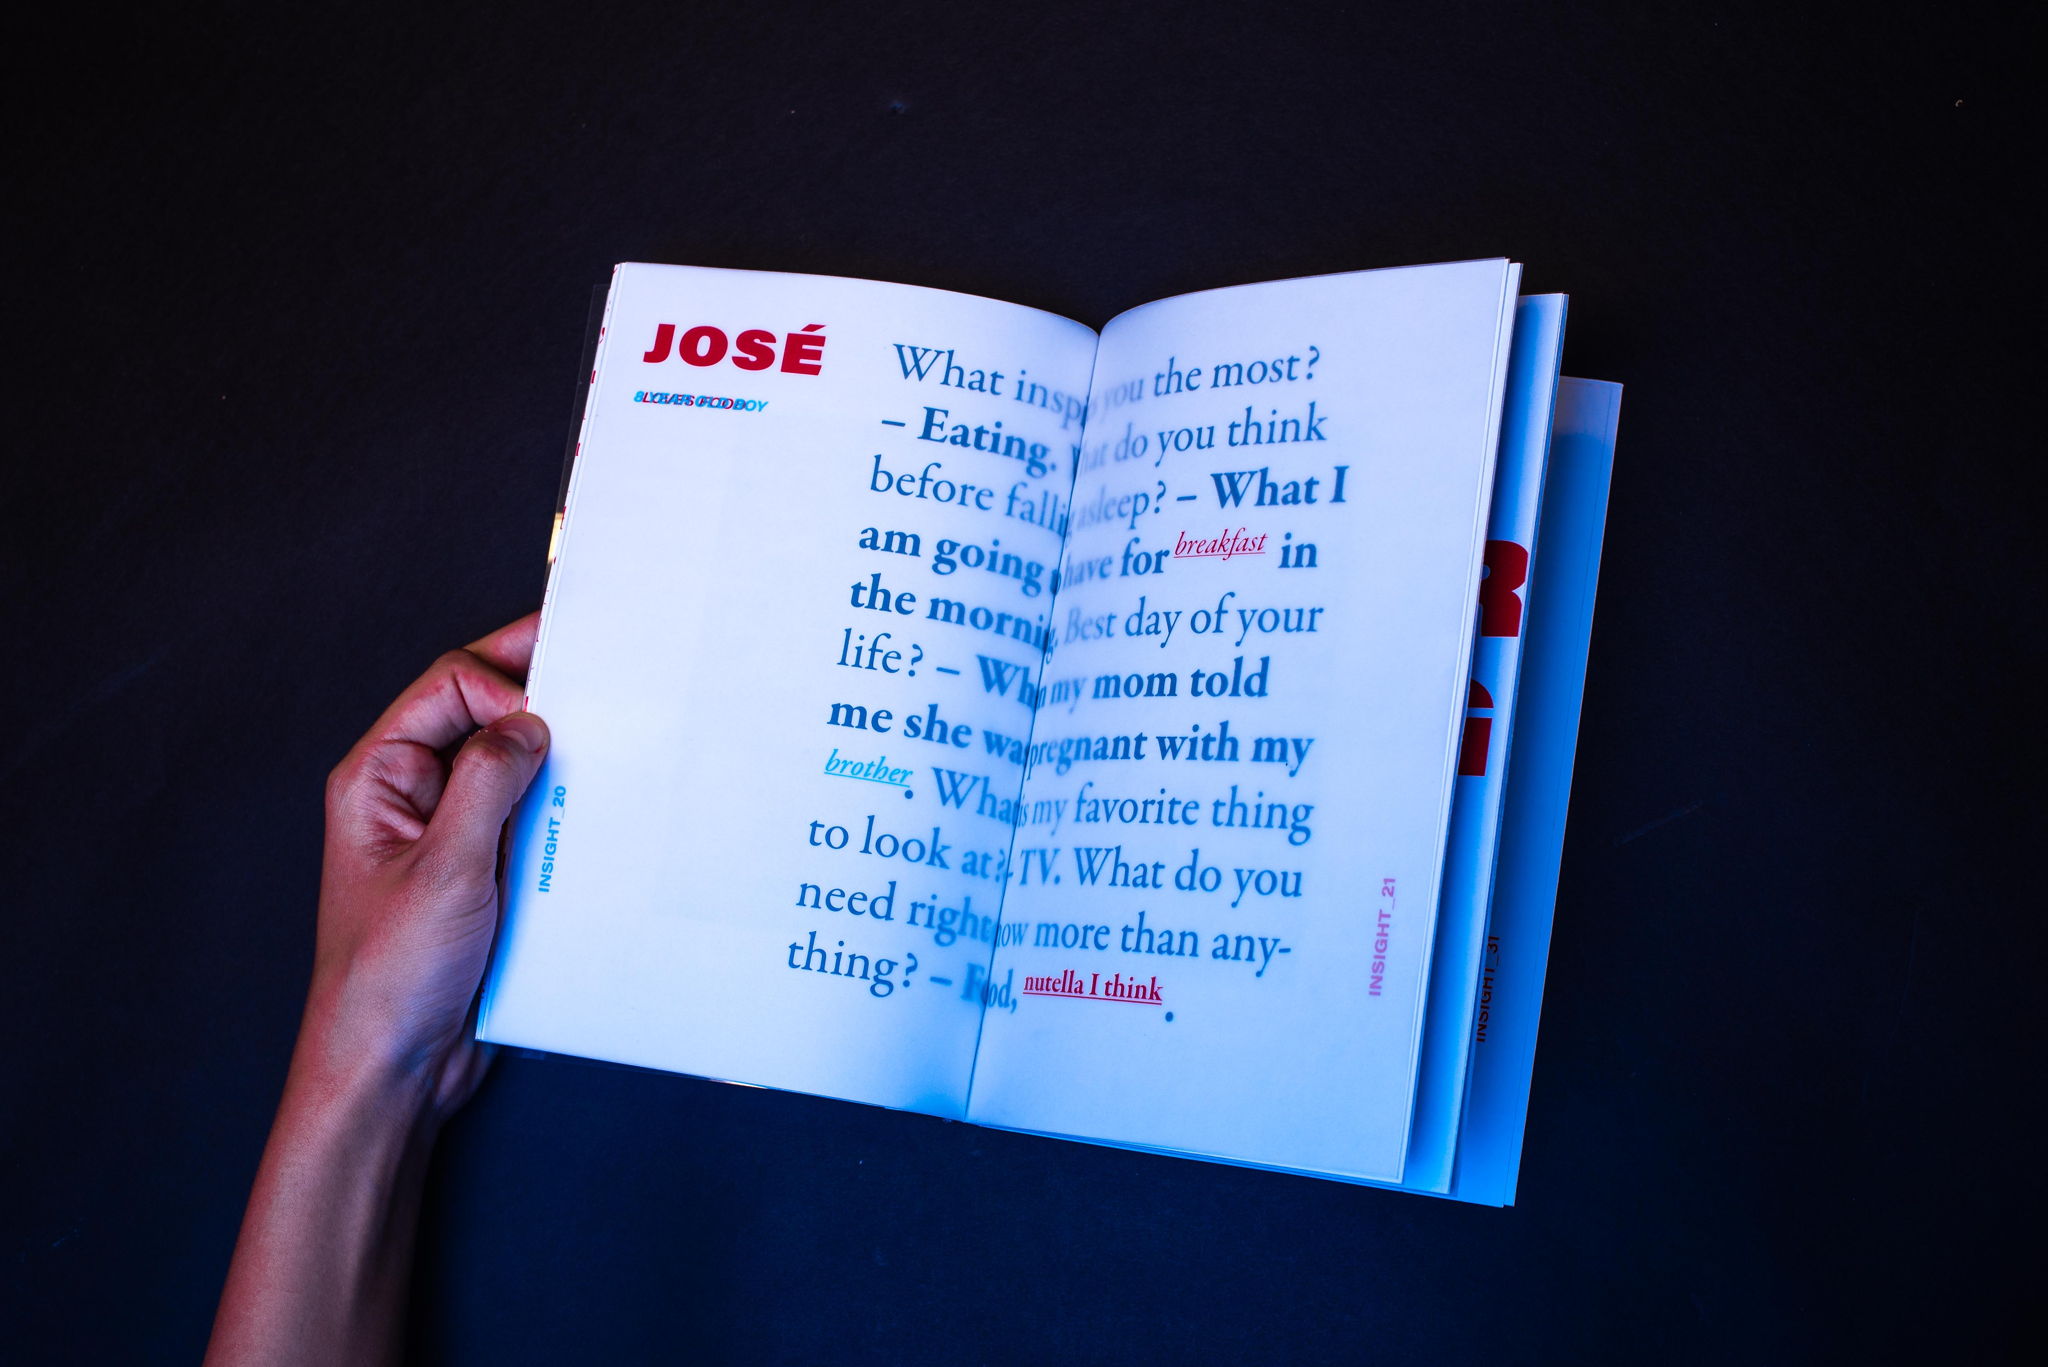 JOSÉ
8 YEAR OLD BOY
LOVES FOOD
What inspires you the most?
– Eating. What do you think
before falling asleep? – What I
am going to have for breakfast in
the morning. Best day of your
life? – When my mom told
me she was pregnant with my
brother. What is my favorite thing
to look at? – TV. What do you
need right now more than any-
thing? – Food, nutella I think.
INSIGHT_20
INSIGHT_21
INSIGHT_31